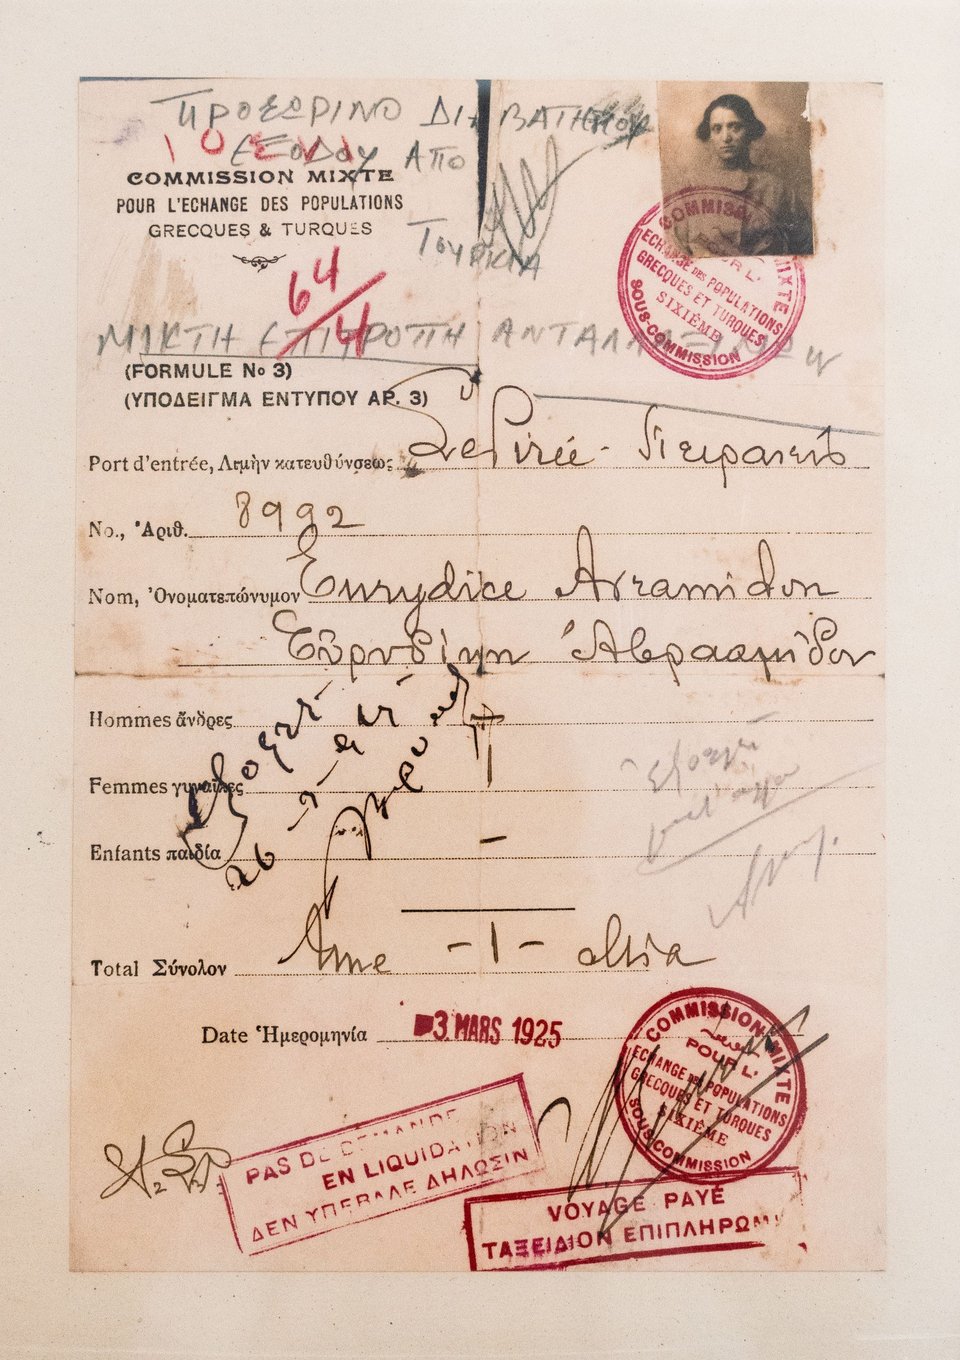 ΠΡΟΣΩΡΙΝΟ ΔΙΑΒΑΤΗΡΙΟΝ
ΕΞΟΔΟΥ ΑΠΟ
ΤΟΥΡΚΙΑ
COMMISSION MIXTE
POUR L'ECHANGE DES POPULATIONS
GRECQUES & TURQUES
64/4
COMMISSION MIXTE
POUR L'
ECHANGE DES POPULATIONS
GRECQUES ET TURQUES
SIXIÈME
SOUS-COMMISSION
ΜΙΚΤΗ ΕΠΙΤΡΟΠΗ
(FORMULE No 3)
(ΥΠΟΔΕΙΓΜΑ ΕΝΤΥΠΟΥ ΑΡ. 3)
Port d'entrée, Λιμὴν κατευθύνσεως Le Pirée - Πειραιεὺς
No., Ἀριθ. 8992
Nom, Ὀνοματεπώνυμον Eurydice Avramidou
Εὐρυδίκη Ἀβρααμίδου
Hommes ἄνδρες
Femmes γυναῖκες 1
Enfants παιδία -
Total Σύνολον Ame - 1 -
Date Ἡμερομηνία 3 MARS 1925
COMMISSION MIXTE
POUR L'
ECHANGE DES POPULATIONS
GRECQUES ET TURQUES
SIXIÈME
SOUS-COMMISSION
PAS DE DEMANDE
EN LIQUIDATION
ΔΕΝ ΥΠΕΒΑΛΕ ΔΗΛΩΣΙΝ
VOYAGE PAYÉ
ΤΑΞΕΙΔΙΟΝ